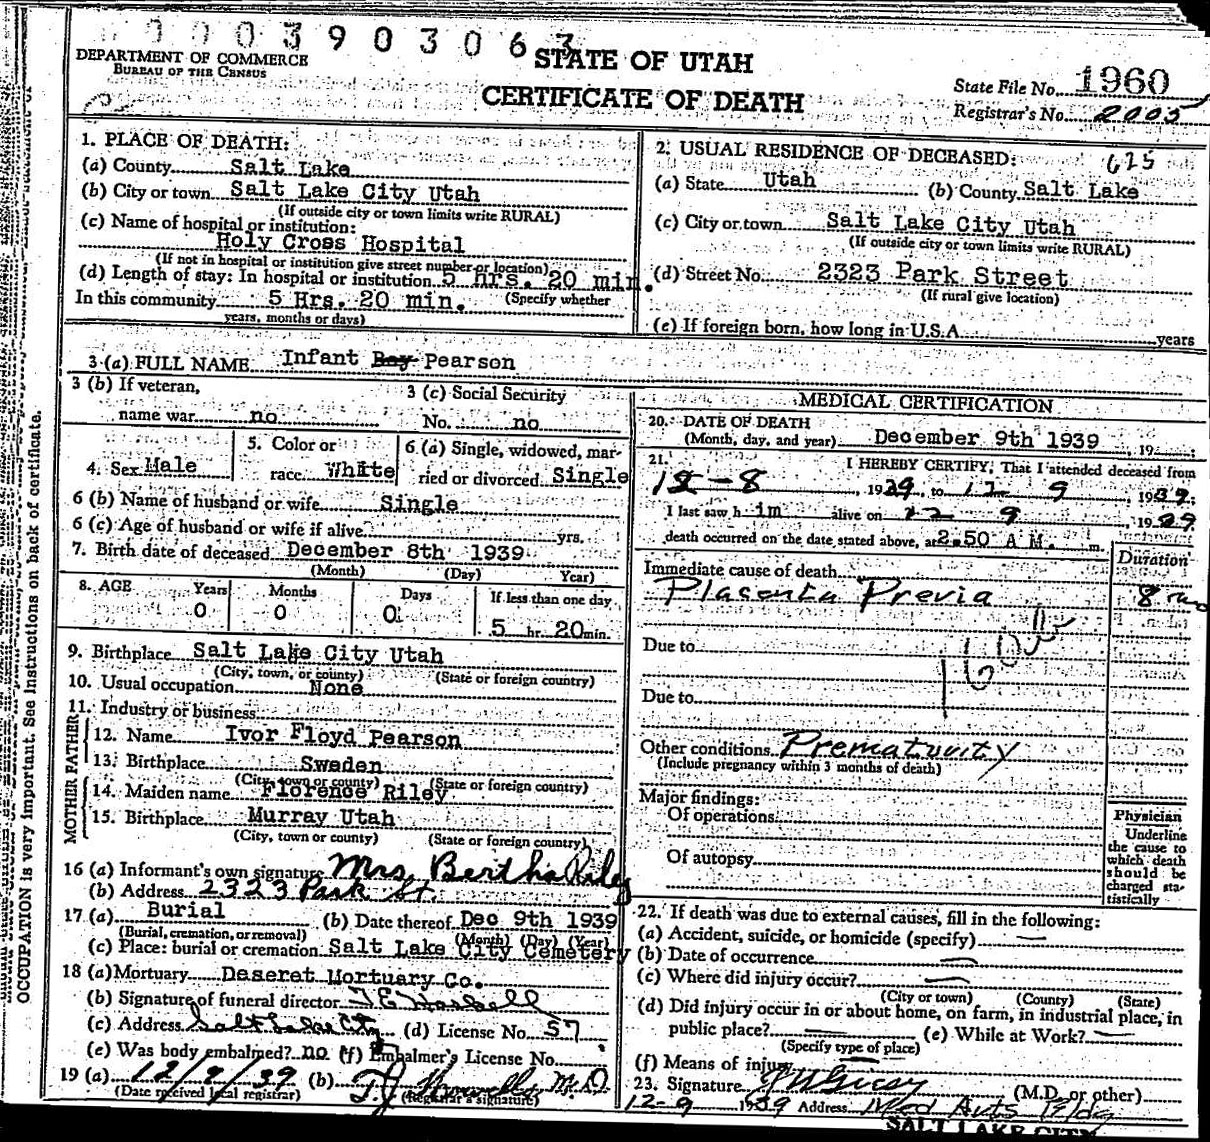 0003903063
DEPARTMENT OF COMMERCE
BUREAU OF THE CENSUS
STATE OF UTAH
CERTIFICATE OF DEATH
State File No. 1960
Registrar's No. 2005
1. PLACE OF DEATH:
(a) County Salt Lake
(b) City or town Salt Lake City Utah
(If outside city or town limits write RURAL)
(c) Name of hospital or institution:
Holy Cross Hospital
(If not in hospital or institution give street number or location)
(d) Length of stay: In hospital or institution 5 hrs. 20 min.
In this community 5 Hrs. 20 min. (Specify whether
years, months or days)
2. USUAL RESIDENCE OF DECEASED: 625
(a) State Utah (b) County Salt Lake
(c) City or town Salt Lake City Utah
(If outside city or town limits write RURAL)
(d) Street No. 2323 Park Street
(If rural give location)
(e) If foreign born, how long in U.S.A. years
3 (a) FULL NAME Infant Boy Pearson
3 (b) If veteran,
name war no
3 (c) Social Security
No. no
4. Sex Male
5. Color or
race White
6 (a) Single, widowed, mar-
ried or divorced Single
6 (b) Name of husband or wife Single
6 (c) Age of husband or wife if alive yrs.
7. Birth date of deceased December 8th 1939
(Month) (Day) Year)
8. AGE Years Months Days If less than one day
0 0 0 5 hr. 20 min.
9. Birthplace Salt Lake City Utah
(City, town, or county) (State or foreign country)
10. Usual occupation None
11. Industry or business
FATHER
12. Name Ivor Floyd Pearson
13. Birthplace Sweden
(City, town or county) (State or foreign country)
MOTHER
14. Maiden name Florence Riley
15. Birthplace Murray Utah
(City, town or county) (State or foreign country)
16 (a) Informant's own signature Mrs Bertha Riley
(b) Address 2323 Park St.
17 (a) Burial (b) Date thereof Dec 9th 1939
(Burial, cremation, or removal) (Month) (Day) (Year)
(c) Place: burial or cremation Salt Lake City Cemetery
18 (a) Mortuary Deseret Mortuary Co.
(b) Signature of funeral director
(c) Address Salt Lake City (d) License No. 57
(e) Was body embalmed? no (f) Embalmer's License No.
19 (a) 12/9/39 (b) M.D.
(Date received local registrar) (Registrar's signature)
MEDICAL CERTIFICATION
20. DATE OF DEATH
(Month, day, and year) December 9th 1939, 19
21. I HEREBY CERTIFY, That I attended deceased from
12-8, 1939, to 12 9, 1939;
I last saw h im alive on 12 9, 1939
death occurred on the date stated above, at 2.50 A M. m.
Duration
Immediate cause of death
Placenta Previa 8 mo
Due to
Due to
Other conditions Prematurity
(Include pregnancy within 3 months of death)
Major findings:
Of operations
Of autopsy
Physician
Underline
the cause to
which death
should be
charged sta-
tistically
22. If death was due to external causes, fill in the following:
(a) Accident, suicide, or homicide (specify) —
(b) Date of occurrence —
(c) Where did injury occur? —
(City or town) (County) (State)
(d) Did injury occur in or about home, on farm, in industrial place, in
public place? — (e) While at Work? —
(Specify type of place)
(f) Means of injury
23. Signature (M.D. or other)
12-9 1939 Address Med Arts Bldg
SALT LAKE CITY
OCCUPATION is very important. See Instructions on back of certificate.